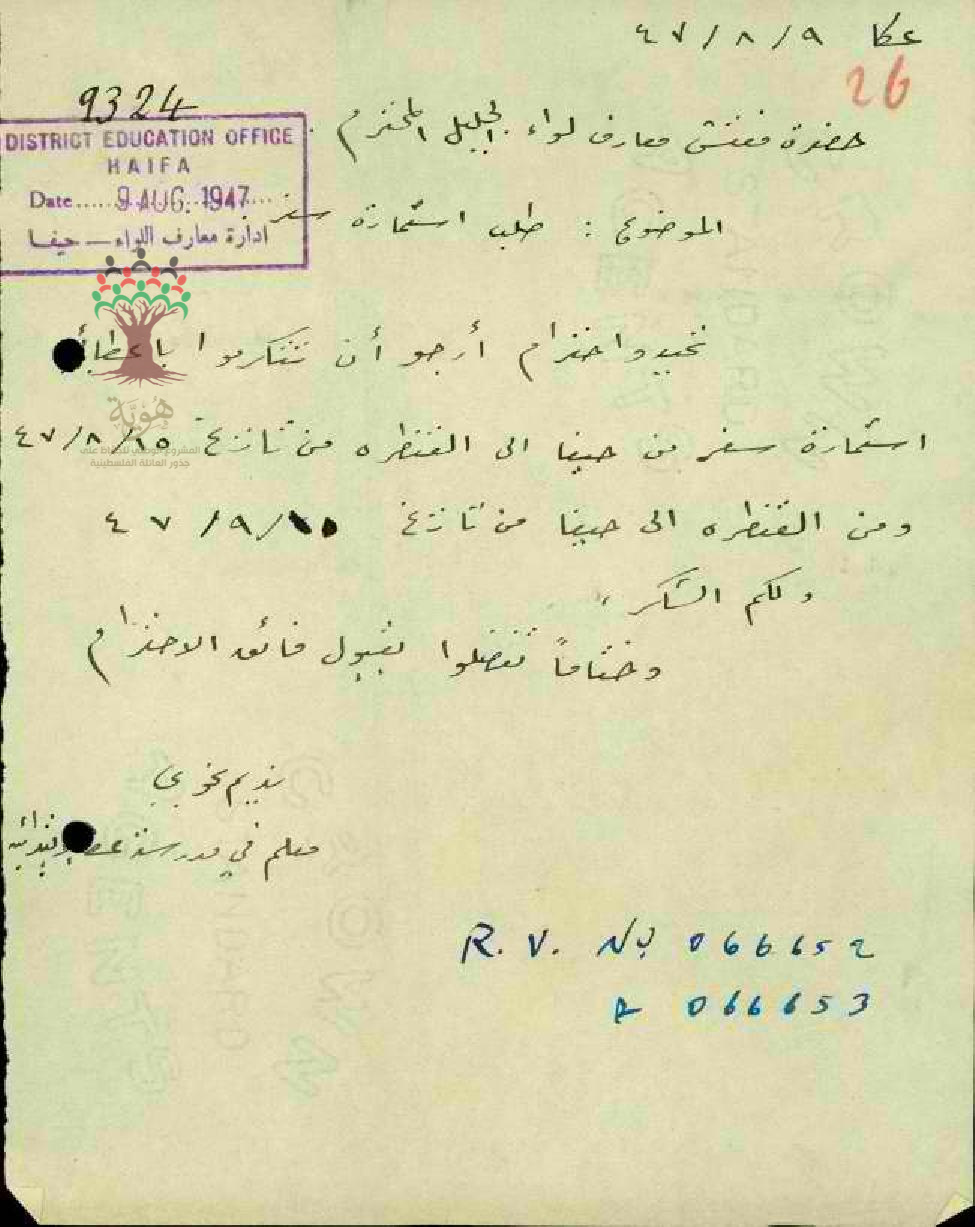 عكا ٤٧/٨/٩
26
9324
DISTRICT EDUCATION OFFICE
HAIFA
Date..... 9 AUG. 1947....
ادارة معارف اللواء — حيفا
حضرة مفتش معارف لواء الجليل المحترم .
الموضوع : طلب استمارة سفر
تحية واحترام أرجو أن تتكرموا باعطائي
استمارة سفر من حيفا الى القنطره من تاريخ ٤٧/٨/١٥
ومن القنطره الى حيفا من تاريخ ٤٧/٩/١٥
ولكم الشكر ،
وختاماً تفضلوا بقبول فائق الاحترام
نديم
معلم في مدرسة عكا
R. V. No 066652
& 066653
هُوِيَّة
المشروع الوطني للحفاظ على
جذور العائلة الفلسطينية